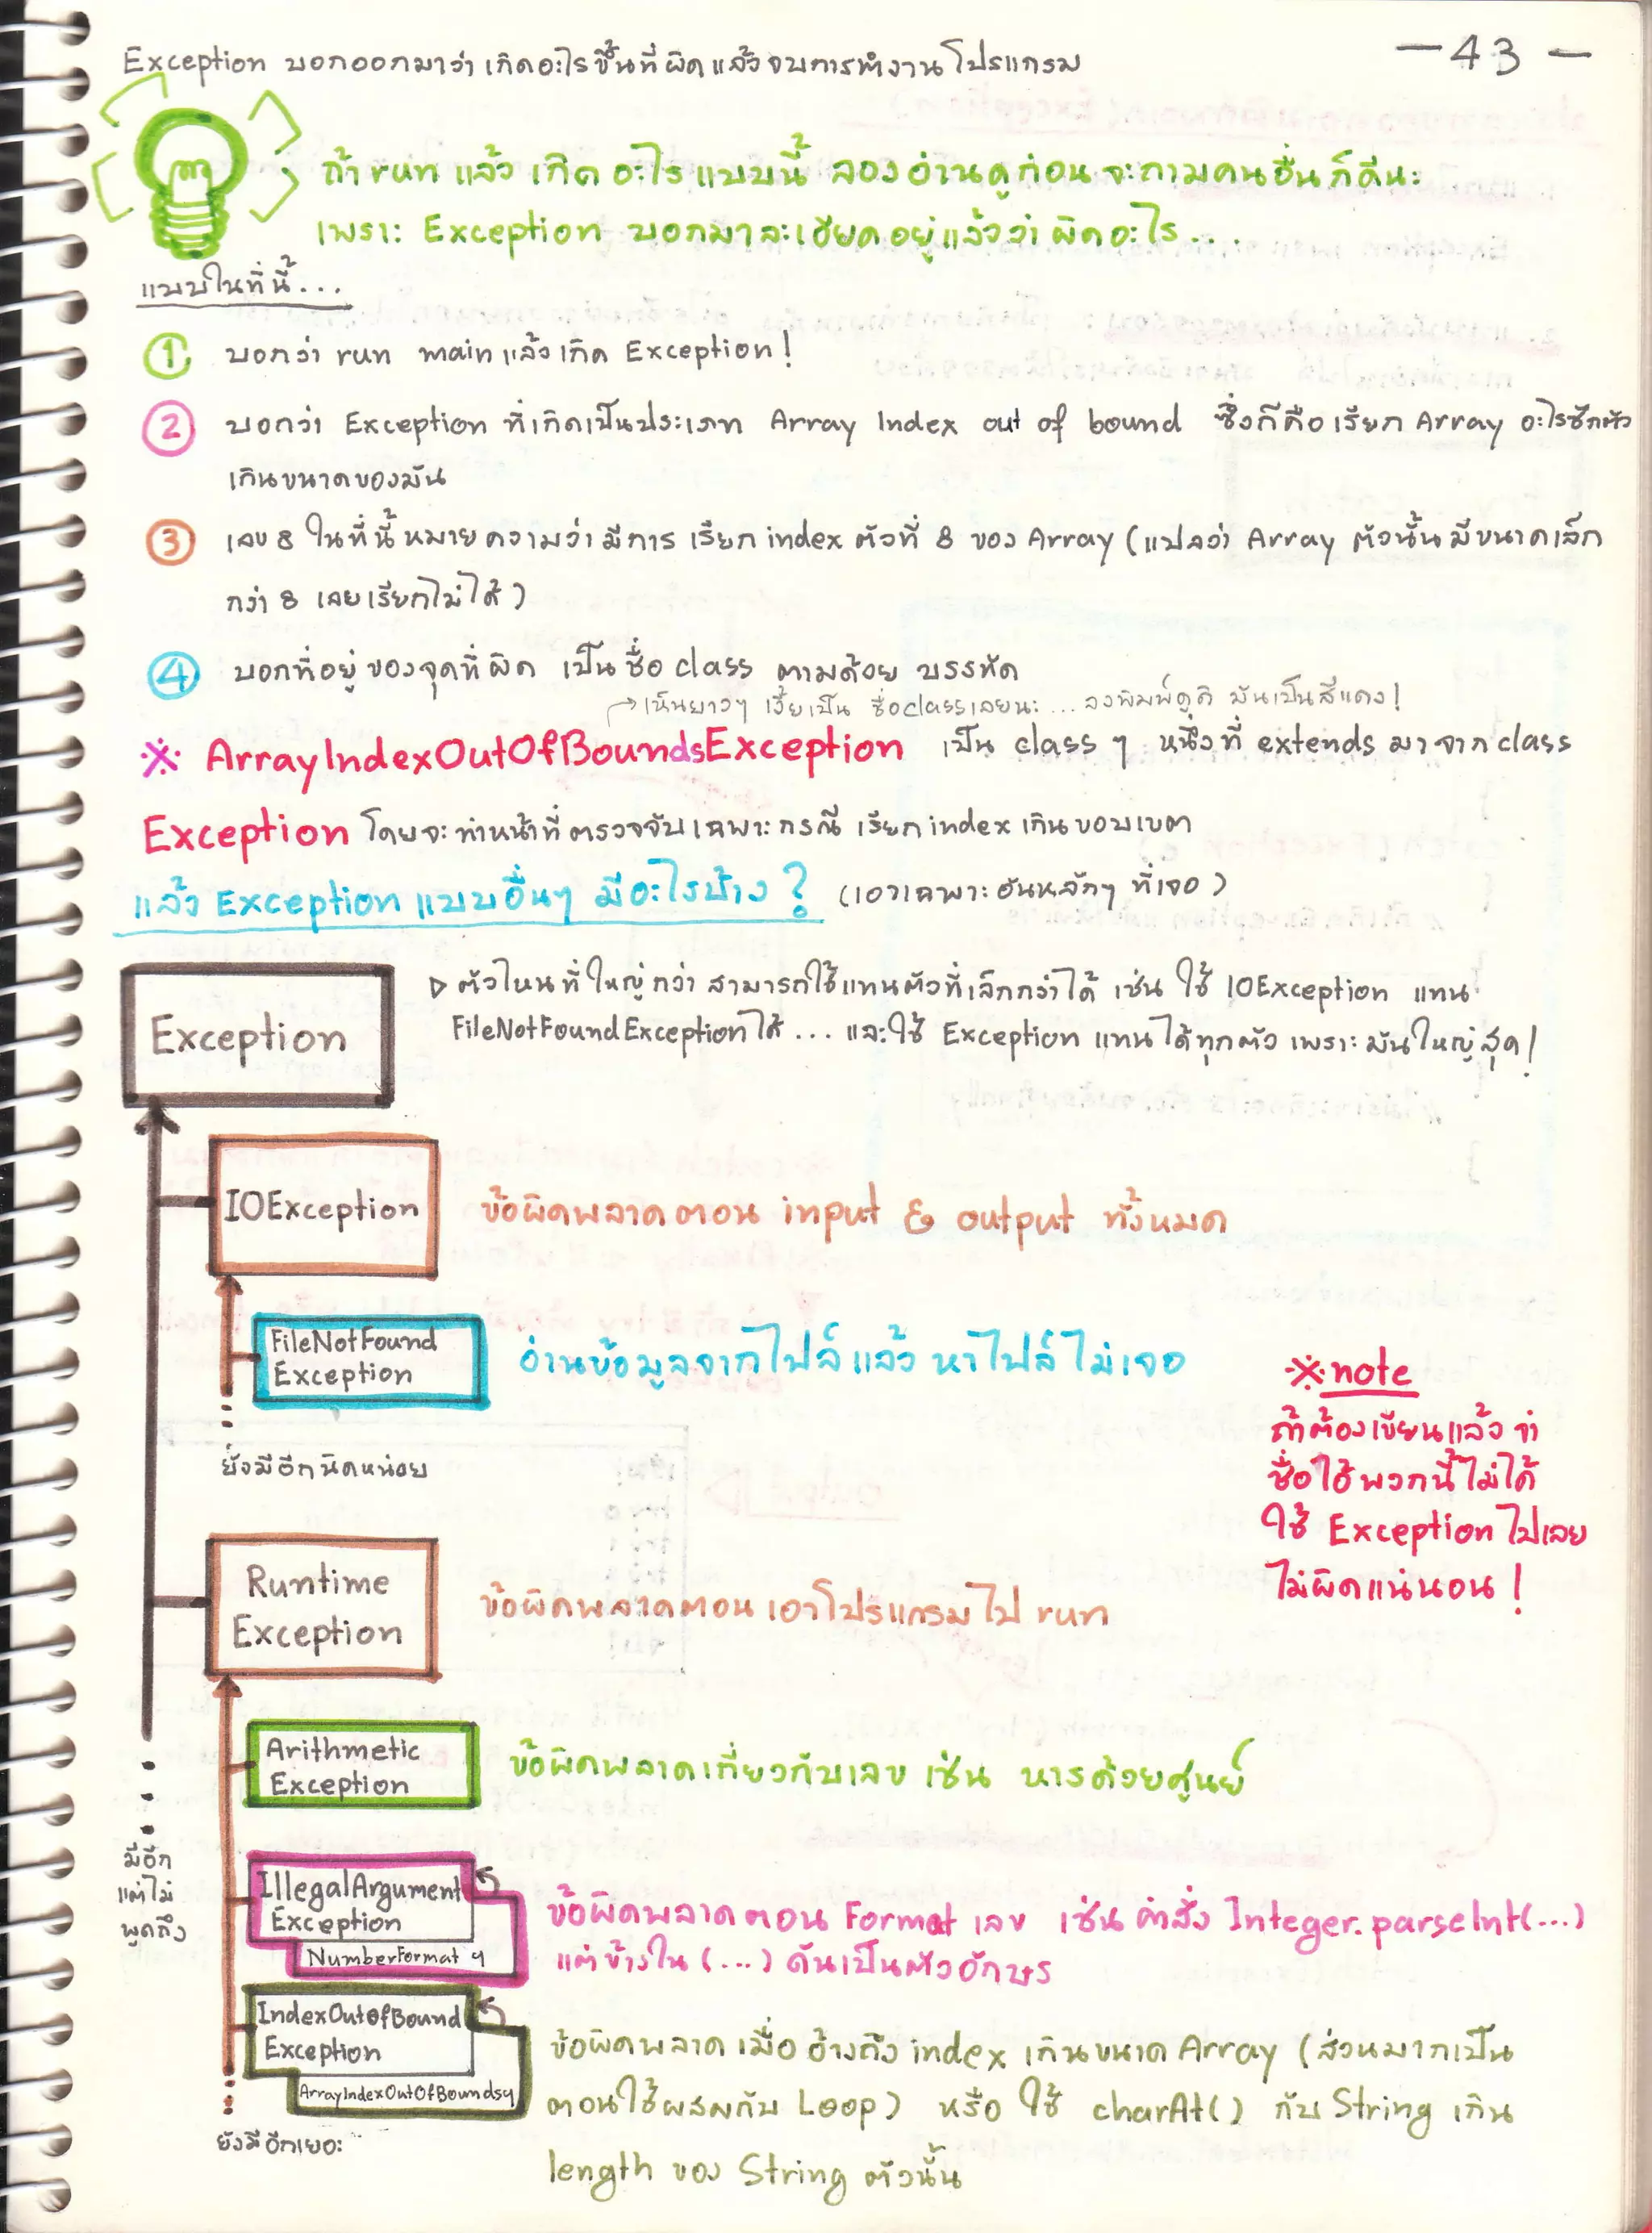 Exception บอกออกมาว่าเกิดอะไรขึ้นที่ผิดแล้วจบการทำงานโปรแกรม
— 43 —
ถ้า run แล้ว เกิด อะไร แบบนี้ ลองอ่านดูก่อนจะถามคนอื่นก็ดีนะ
เพราะ Exception บอกมาละเอียดอยู่แล้วว่าผิดอะไร...
แบบในที่นี้...
① บอกว่า run main แล้วเกิด Exception!
② บอกว่า Exception ที่เกิดเป็นประเภท Array Index out of bound ซึ่งก็คือเรียก Array อะไรซักตัว
เกินขนาดของมัน
③ เลข 8 ในที่นี้หมายความว่ามีการ เรียก index ตัวที่ 8 ของ Array (แปลว่า Array ตัวนั้นมีขนาดเล็ก
กว่า 8 เลยเรียกไม่ได้)
④ บอกที่อยู่ของจุดที่ผิด เป็นชื่อ class ตามด้วย บรรทัด
→เห็นยาวๆ เงี้ยเป็น ชื่อclassเลยนะ... ลงพิมพ์ดูดิ มันเป็นสีแดง!
※ ArrayIndexOutOfBoundsException เป็น class ๆ หนึ่งที่ extends มาจาก class
Exception โดยจะทำหน้าที่ตรวจจับเฉพาะกรณี เรียก index เกินขอบเขต
แล้ว Exception แบบอื่นๆ มีอะไรบ้าง? (เอาเฉพาะอันหลักๆ ที่เจอ)
Exception
▷ ตัวไหนที่ใหญ่กว่า สามารถใช้แทนตัวที่เล็กกว่าได้ เช่น ใช้ IOException แทน
FileNotFoundExceptionได้ ... และใช้ Exception แทนได้ทุกตัว เพราะมันใหญ่สุด!
IOException
ข้อผิดพลาดตอน input & output ทั้งหมด
FileNotFound
Exception
อ่านข้อมูลจากไฟล์ แล้ว หาไฟล์ ไม่เจอ
ยังมีอีกนิดหน่อย
※note
ถ้าต้องเขียนแล้ว จำ
ชื่อไอ้พวกนี้ไม่ได้
ใช้ Exception ไปเลย
ไม่ผิดแน่นอน!
Runtime
Exception
ข้อผิดพลาดตอน เอาโปรแกรมไป run
Arithmetic
Exception
ข้อผิดพลาดเกี่ยวกับเลข เช่น หารด้วยศูนย์
มีอีก
แต่ไม่
พูดถึง
IllegalArgument
Exception
NumberFormat ๆ
ข้อผิดพลาดตอน Format เลข เช่น คำสั่ง Integer.parseInt(...)
แต่ข้างใน (...) ดันเป็นตัวอักษร
IndexOutOfBound
Exception
ArrayIndexOutOfBoundsๆ
ข้อผิดพลาด เมื่ออ้างถึง index เกินขนาด Array (ส่วนมากเป็น
ตอนใช้ผสมกับ Loop) หรือ ใช้ charAt() กับ String เกิน
length ของ String ตัวนั้น
ยังมีอีกเยอะ